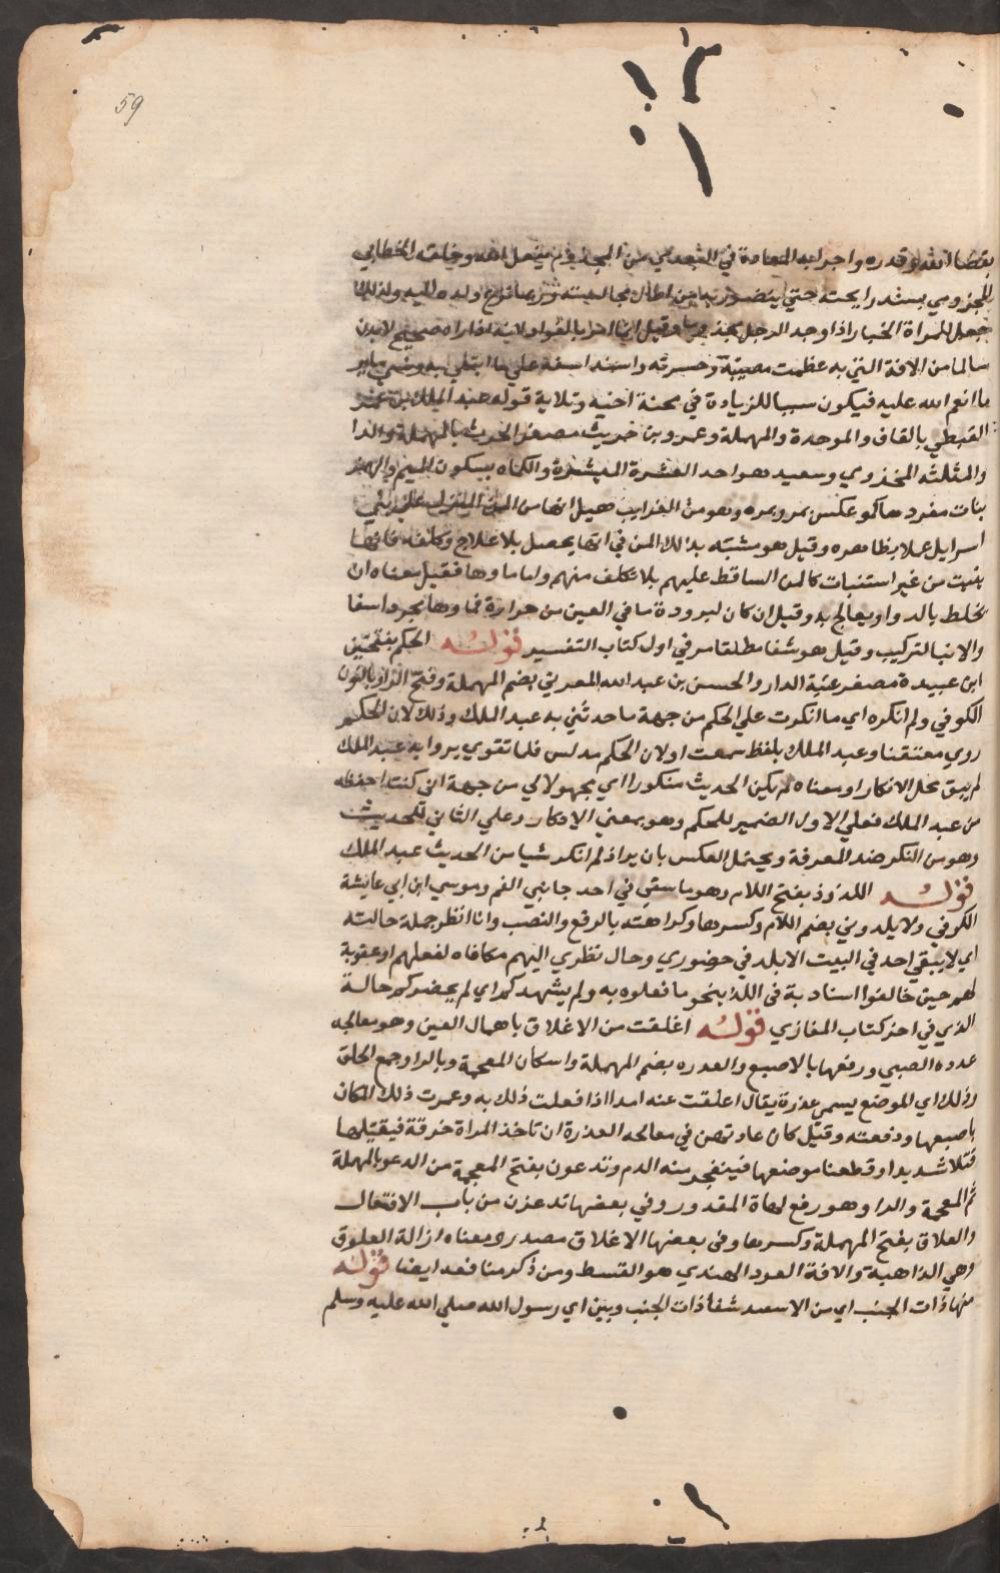 59
بقضا الله وقدره واجرابه العادة في التعدي من المجذوم بفعل الله وخلقه الخطابي
المجزومي يشتد رايحته حتي
جعل للمراة الخيار اذا وجد الرجل
سالما من الافة التي به عظمت مصيبته وحسرته واشتد اسفه علي ما ابتلي به ونسي ساير
ما انعم الله عليه فيكون سببا للزيادة في محنة اخيه وبلايه قوله عبد الملك بن عمير
القبطي بالقاف والموحدة والمهملة وعمرو بن حريث مصغر الحرث بالمهملة والرا
والمثلثه المخزومي وسعيد هو احد العشرة المبشرة والكماه بسكون الميم والهمز
بنات مفردها كمو عكس تمر وتمره وهو من الغرايب قيل انها من المن المنزل علي بني
اسرايل عملا بظاهره وقيل هو مشبه بذلك المن في انها يحصل بلا علاج وكلفه فانها
ينبت من غير استنبات كالمن الساقط عليهم بلا تكلف منهم واما ماوها فقيل معناه ان
يخلط بالدوا ويعالج به وقيل ان كان لبرودة ما في العين من حرارة فماوها مجردا شفا
والا فبالتركيب وقيل هو شفا مطلقا مر في اول كتاب التفسير قوله الحكم بفتحتين
ابن عبيدة مصغر عتبة الدار والحسن بن عبد الله العرني بضم المهملة وفتح الرا وبالنون
الكوفي ولم انكره اي ما انكرت علي الحكم من جهة ما حدثني به عبد الملك وذلك لان الحكم
روي معنعنا وعبد الملك بلفظ سمعت او لان الحكم مدلس فلما تقوي بروايه عبد الملك
لم يبق محل الانكار او معناه لم يكن الحديث منكورا اي مجهولا لي من جهة اني كنت احفظه
من عبد الملك فعلي الاول الضمير للحكم وهو بمعني الانكار وعلي الثاني للحديث
وهو من النكر ضد المعرفة ويحتمل العكس بان يراد لم انكر شيا من الحديث عبد الملك
قوله اللدود بفتح اللام وهو ما سقي في احد جانبي الفم وموسي ابن ابي عايشة
الكوفي ولا يلدوني بضم اللام وكسرها وكراهته بالرفع والنصب وانا انظر جملة حاليه
اي لا يبقي احد في البيت الا يلد في حضوري وحال نظري اليهم مكافاه لفعلهم او عقوبة
لهم حين خالفوا اسنادبة في اللد بنحو ما فعلوه به ولم يشهدكم اي لم يحضركم حالة
الذي في اخر كتاب المغازي قوله اغلقت من الاغلاق باهمال العين وهو معالجه
عدوه الصبي ورفعها بالاصبع والعدره بضم المهملة واسكان المعجمة وبالرا وجمع الحلق
وذلك اي الموضع يسمي عذرة يقال اعلقت عنه امه اذا فعلت ذلك به وغمرت ذلك المكان
باصبعها ودفعته وقيل كان عادتهن في معالجه العذرة ان تاخذ المراة خرقة فيفتلها
فتلا شديدا وقطعنا موضعها فينفجر منه الدم وتدعون بفتح المعجمة من الدعو بالمهملة
ثم المعجمة والرا وهو رفع لهاة المعذور وفي بعضها تدعزن من باب الافتعال
والعلاق بفتح المهملة وكسرها وفي بعضها الاغلاق مصدره ومعناه ازالة العلوق
وهي الداهية والافة العود الهندي هو القسط ومن ذكر منافعه ايضا قوله
منها ذات الجنب اي من الاسعه شفا ذات الجنب وبين اي رسول الله صلي الله عليه وسلم